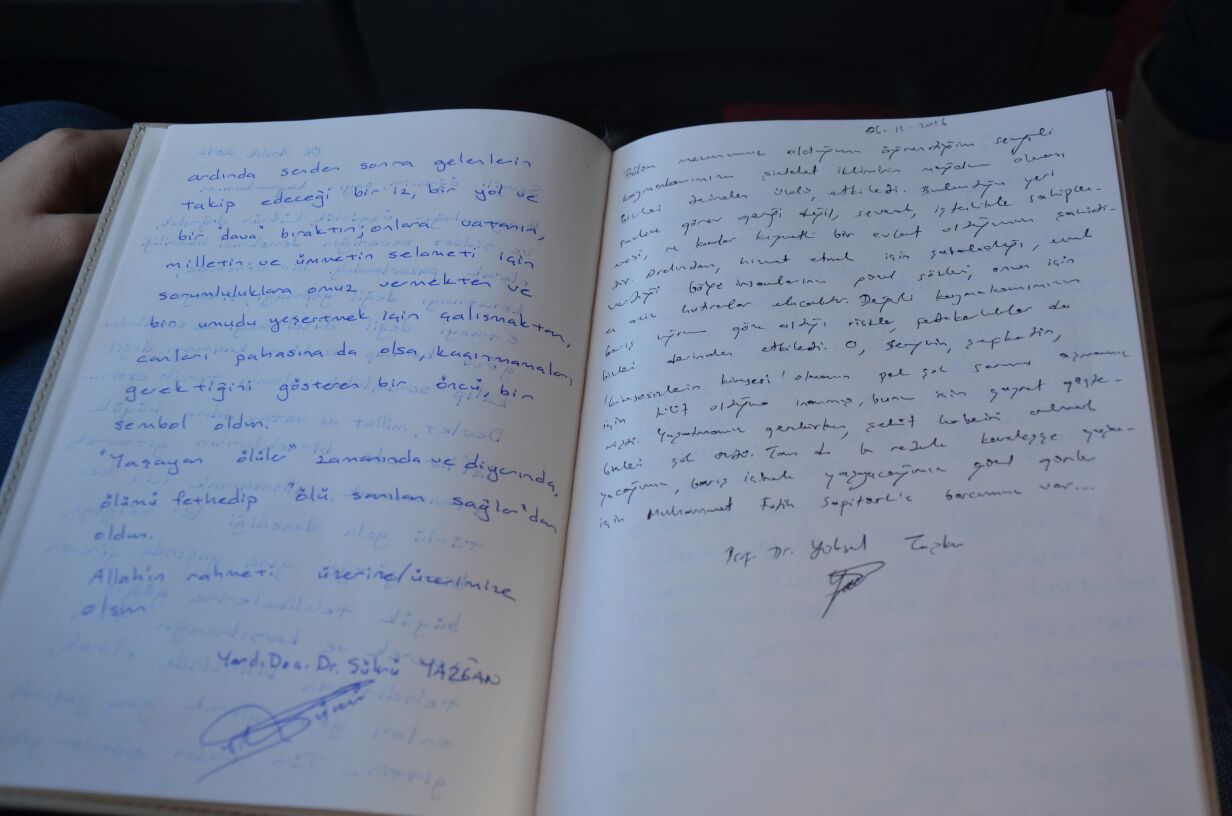 ardında senden sonra gelenlerin
takip edeceği bir iz, bir yol ve
bir "dava" bıraktın; onlara vatanın,
milletin ve ümmetin selameti için
sorumluluklara omuz vermekten ve
bir umudu yeşertmek için çalışmaktan,
canları pahasına da olsa, kaçınmamaları
gerektiğini gösteren bir öncü, bir
sembol oldun.
"Yaşayan ölüler" zamanında ve diyarında,
ölümü fethedip "ölü sanılan sağlar"dan
oldun.
Allah'ın rahmeti üzerine/üzerimize
olsun
Yard. Doç. Dr. Şükrü YAZĞAN
06.12.2016
Bölüm mezunumuz olduğunu öğrendiğim sevgili
kaymakamımızın şiddet ikliminin mağduru olması
bizleri derinden üzdü, etkiledi. Bulunduğu yeri
sadece görev gereği değil, severek, içtenlikle sahiplen-
mesi, ne kadar kıymetli bir evlat olduğunun şahidi-
dir. Ardından, hizmet etmek için
verdiği bölge insanlarının güzel sözleri, onun için
en aziz hatıralar olacaktır. Değerli kaymakamımızın
barış uğruna göze aldığı riskler, fedakarlıklar da
bizleri derinden etkiledi. O, sevginin, şefkatin,
'kimsesizlerin kimsesi' olmanın pek çok sorunu aşmamız
için kilit olduğuna inanmış, bunun için gayret göster-
mişti. Yaşatmamız gerekirken, şehit haberini almak
bizleri çok üzdü. Tam da bu nedenle kardeşçe yaşa-
yacağımız, barış içinde yaşayacağımız güzel günler
için Muhammet Fatih Safitürk'e borcumuz var...
Prof. Dr. Yüksel